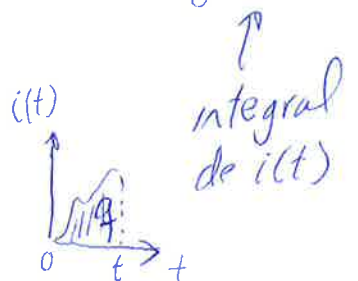 integral
de i(t)
i(t)
q
0 t t